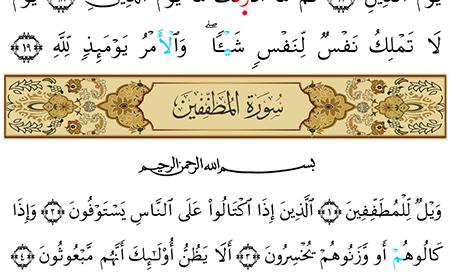 يَوْمَ الدِّينِ ثُمَّ مَا أَدْرَاكَ مَا يَوْمُ الدِّينِ ﴿١٨﴾ يَوْمَ
لَا تَمْلِكُ نَفْسٌ لِنَفْسٍ شَيْئًا ۖ وَالْأَمْرُ يَوْمَئِذٍ لِلَّهِ ﴿١٩﴾
سُورَةُ الْمُطَفِّفِينَ
بِسْمِ اللهِ الرَّحْمَنِ الرَّحِيمِ
وَيْلٌ لِلْمُطَفِّفِينَ ﴿١﴾ الَّذِينَ إِذَا اكْتَالُوا عَلَى النَّاسِ يَسْتَوْفُونَ ﴿٢﴾ وَإِذَا
كَالُوهُمْ أَو وَزَنُوهُمْ يُخْسِرُونَ ﴿٣﴾ أَلَا يَظُنُّ أُوْلَئِكَ أَنَّهُم مَبْعُوثُونَ ﴿٤﴾